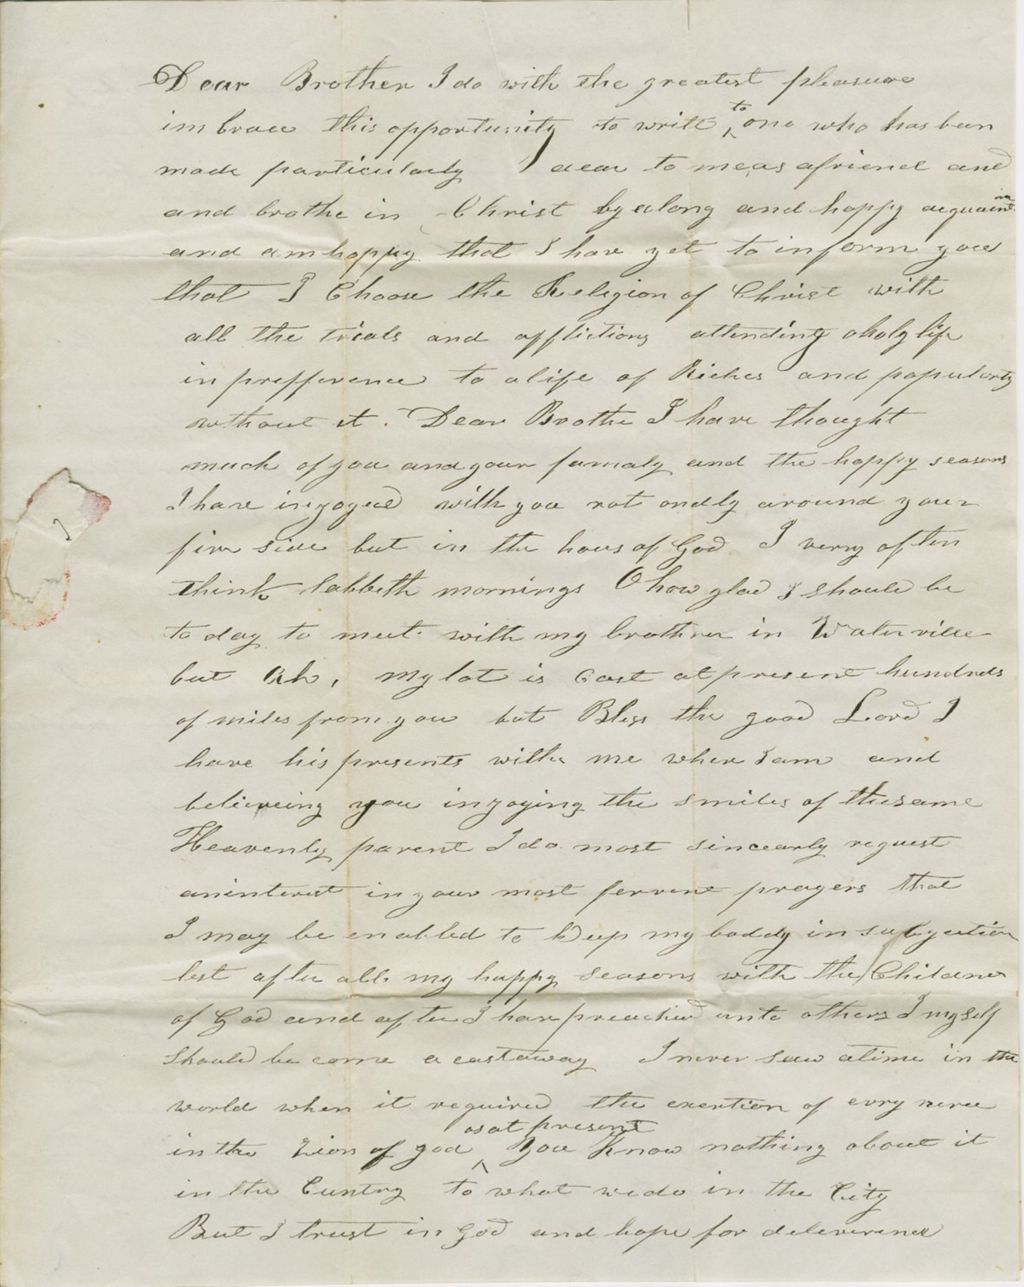 Dear Brother I do with the greatest pleasure
imbrace this opportunity to write to one who has been
made particularly dear to me as a friend and
and brothe in Christ by along and happy acquain
and am happy that I have yet to inform you
that I Choose the Religion of Christ with
all the trials and afflictions attending a holy life
in prefference to a life of Riches and popularity
without it. Dear Brothe I have thought
much of you and your famaly and the happy seasons
I have injoyed with you not ondly around your
fire side but in the hous of God I very often
think Sabbeth mornings O how glad I should be
to day to meet with my brothren in Waterville
but Ah, my lot is Cast at present hundreds
of miles from you but Bless the good Lord I
have his presents with me wher I am and
believeing you injoying the smiles of the same
Heavenly parent I do most sincearly request
an interest in your most fervent prayers that
I may be enabled to keep my boddy in subjection
lest after all my happy seasons with the Children
of God and after I have preached unto others I my self
should be come a castaway I never saw a time in the
world when it required the exertion of evry nerve
in the Zion of god as at present You Know nothing about it
in the Cuntry to what we do in the City
But I trust in God and hope for deliverence